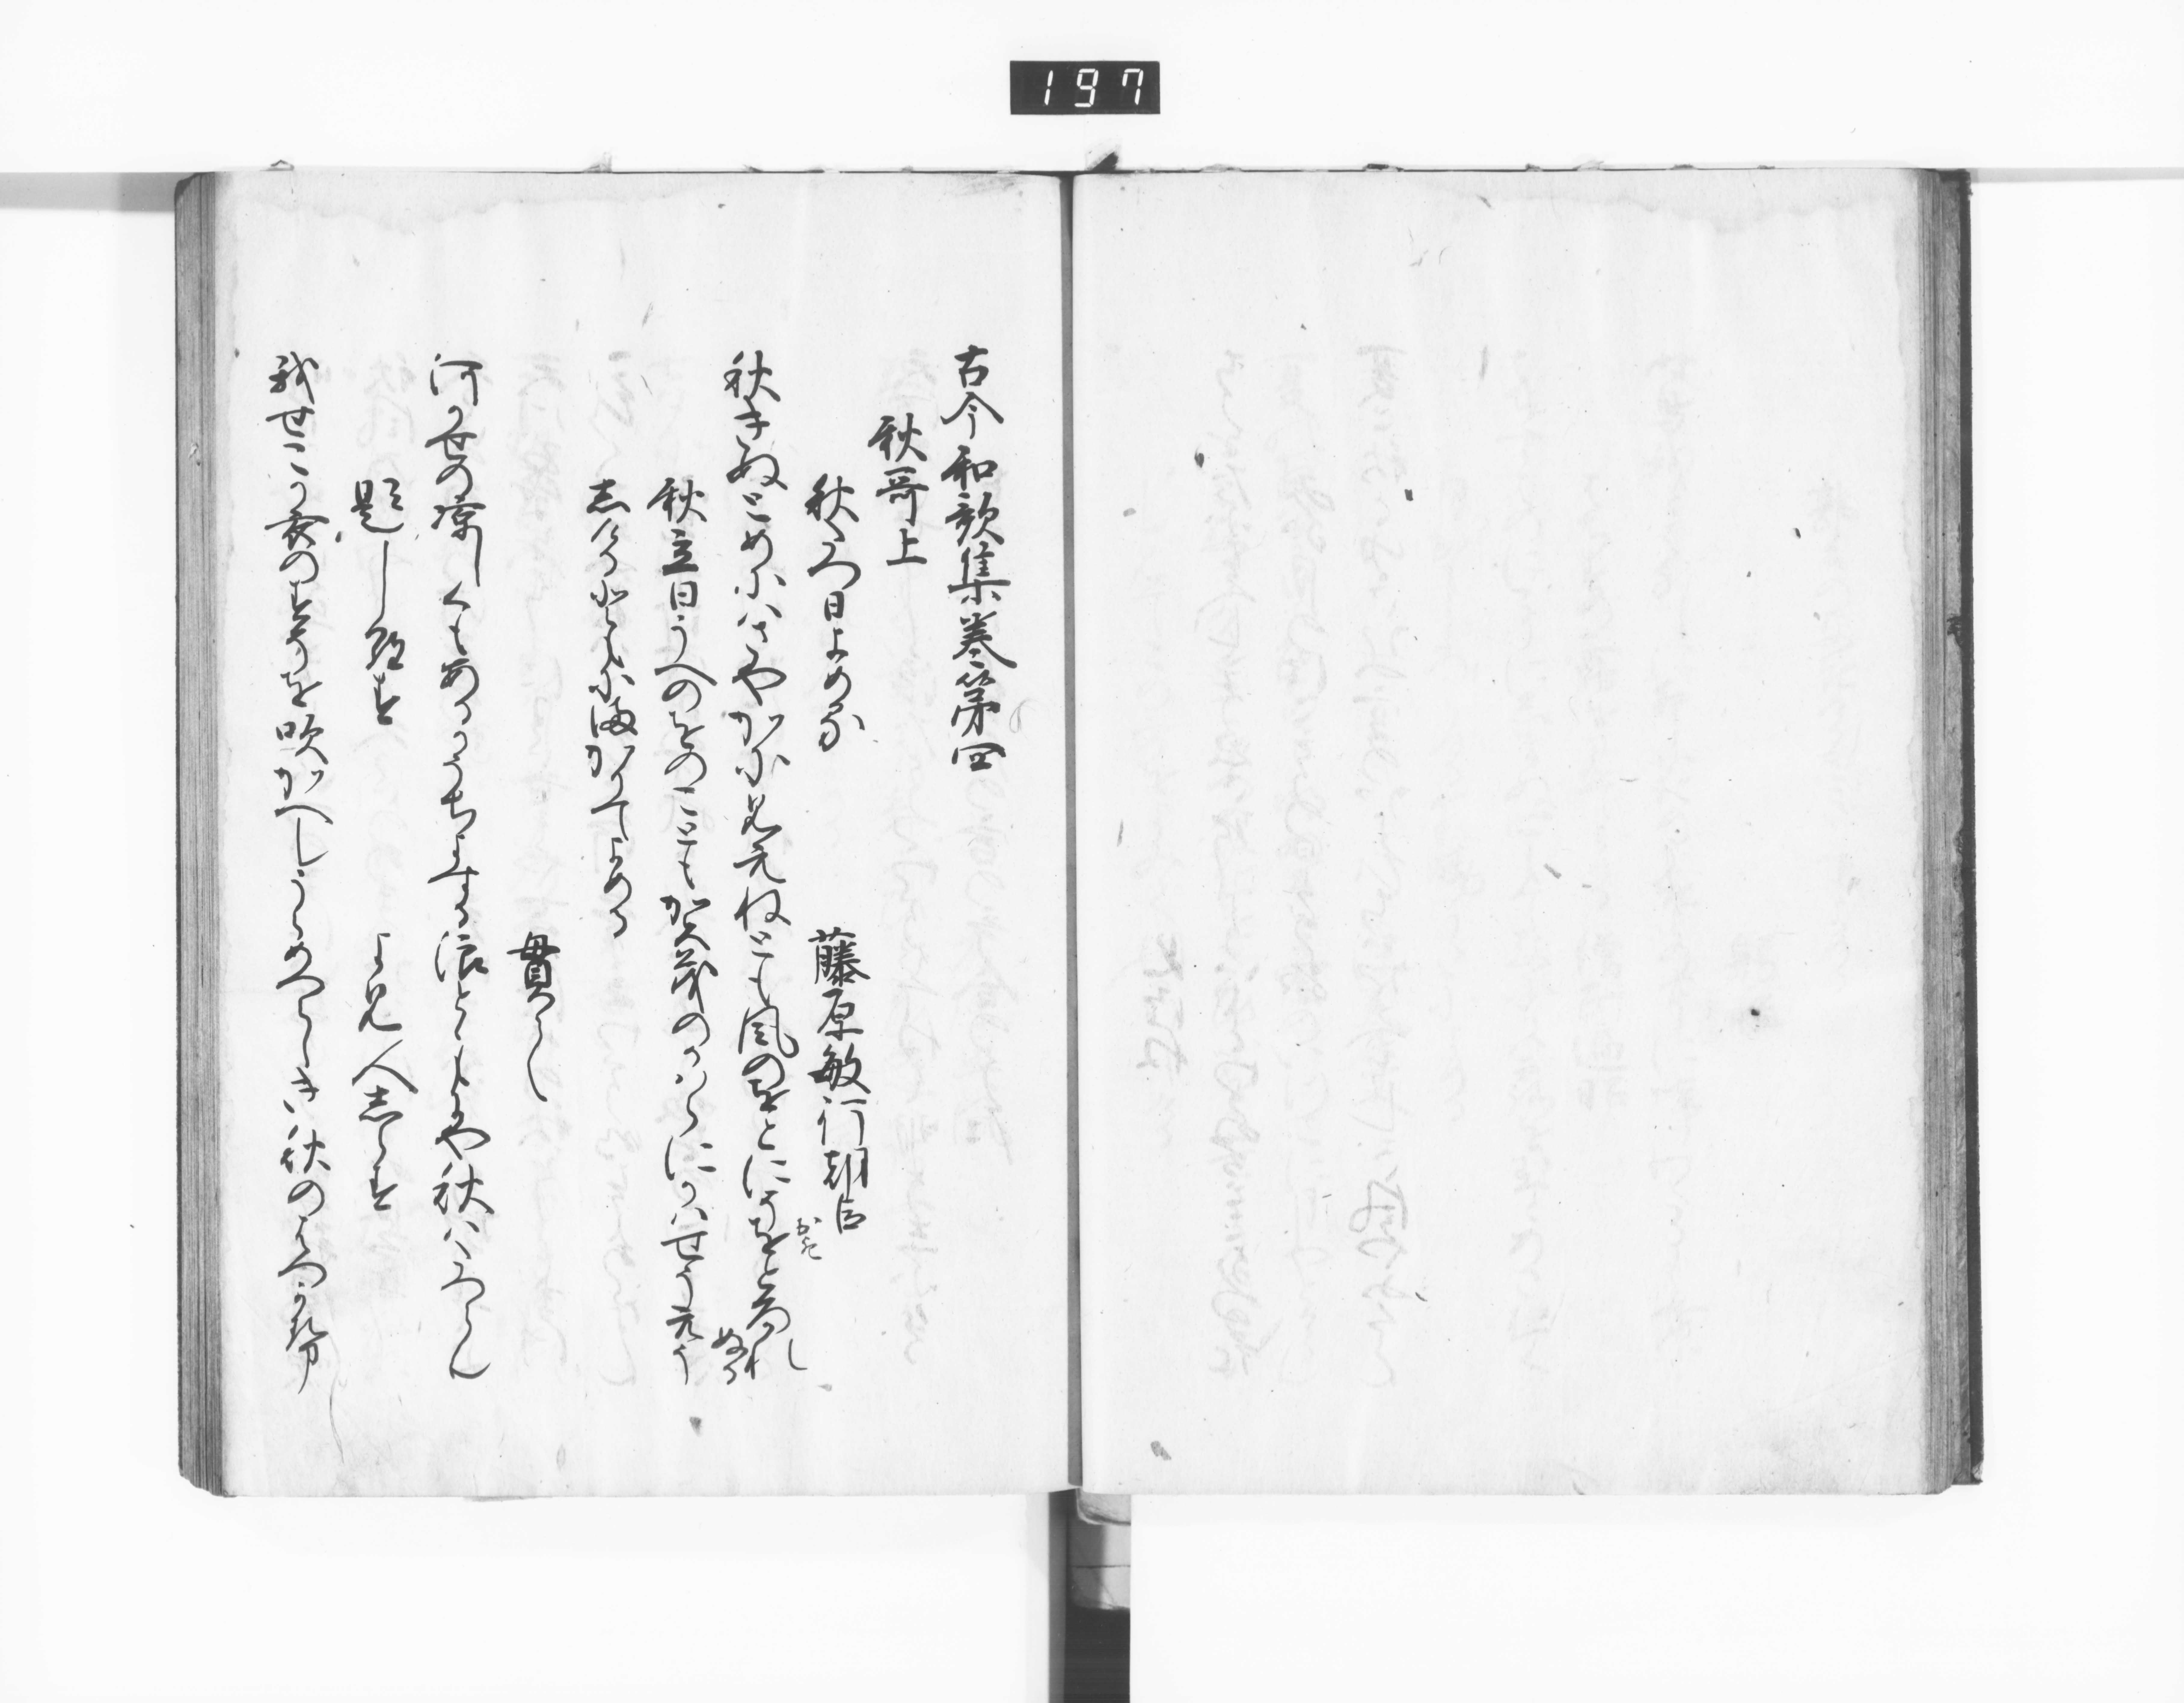 197
古今和歌集巻第四
秋哥上
秋たつ日よめる
藤原敏行朝臣
秋きぬとめにはさやかに見えねども風のをとにぞをとろかれ
おと
し
ぬる
秋立日うへのをのこともかものかはらにかはせうえう
しけるともにまかりてよめる
貫之
河かせの涼しくもあるかうちよする浪とともにや秋はたつらん
題しらす
よみ人しらす
我せこか衣のすそを吹かへしうらめつらしき秋のはつかせ